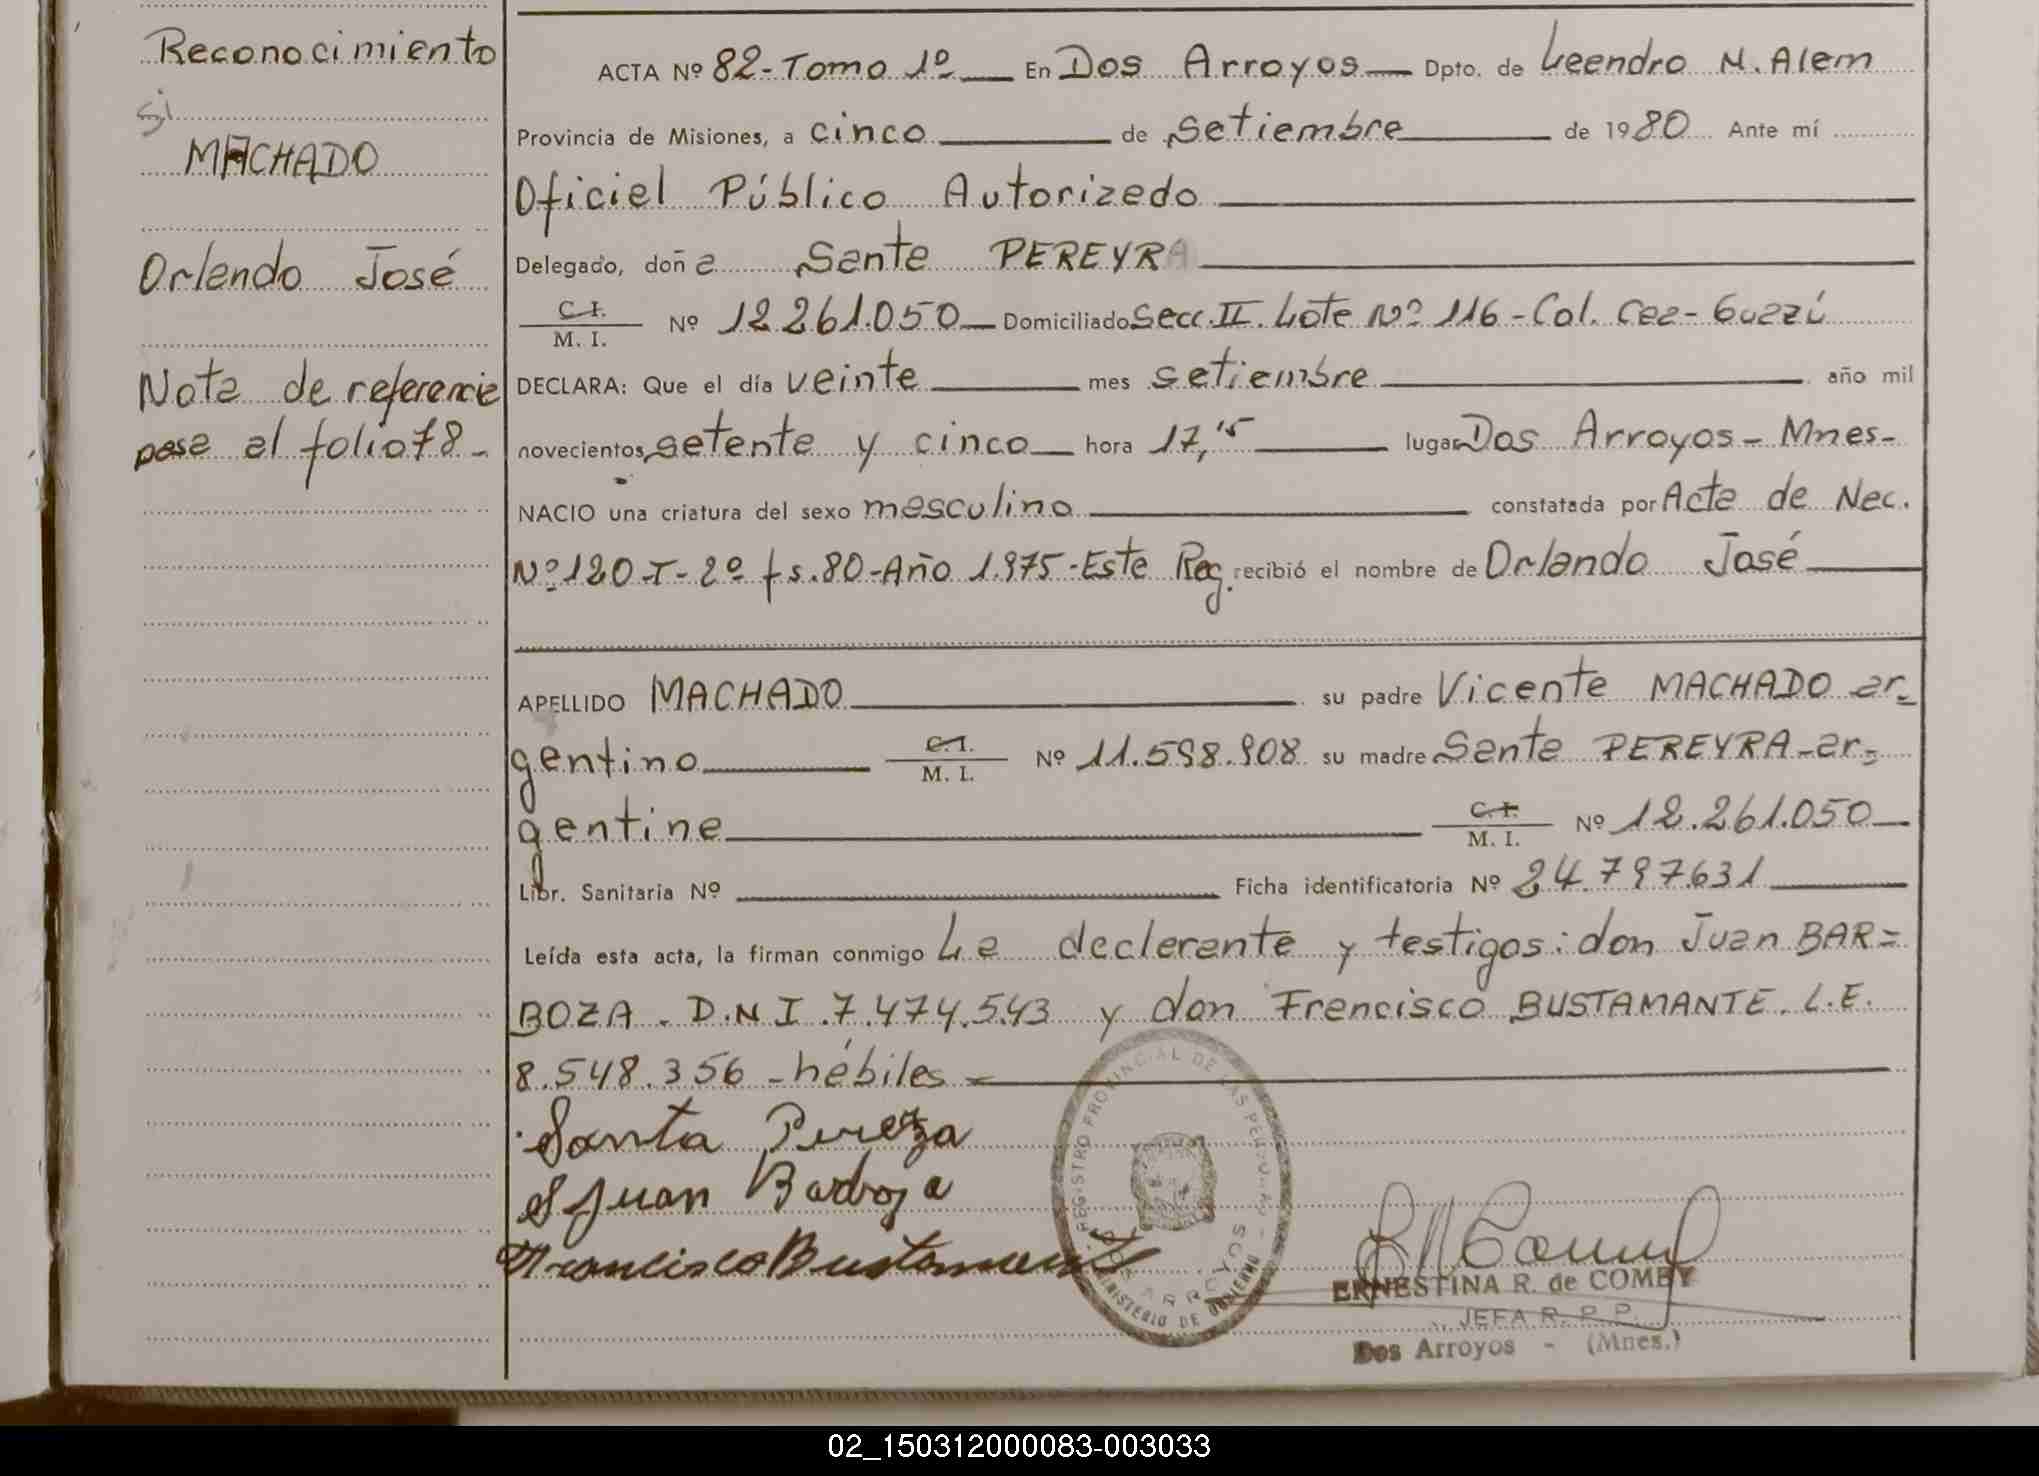 Reconocimiento
Si
MACHADO
Orlando José
Nota de referencia
pasa al folio 78-
ACTA Nº 82-Tomo 1º En Dos Arroyos Dpto. de Leandro N. Alem
Provincia de Misiones, a cinco de setiembre de 1980 Ante mí
Oficial Público Autorizado
Delegado, doña Santa PEREYRA
C.I. / M. I. Nº 12.261.050 Domiciliado Secc. II. Lote Nº 116-Col. Caa-Guazú
DECLARA: Que el día veinte mes setiembre año mil
novecientos setenta y cinco hora 17,15 lugar Dos Arroyos-Mnes-
NACIO una criatura del sexo masculino constatada por Acta de Nac.
Nº 120-T-2º fs.80-Año 1.975-Este Reg. recibió el nombre de Orlando José
APELLIDO MACHADO su padre Vicente MACHADO ar-
gentino C.I. / M. I. Nº 11.598.908 su madre Santa PEREYRA-ar-
gentina C.I. / M. I. Nº 12.261.050
Libr. Sanitaria Nº Ficha identificatoria Nº 24.797631
Leída esta acta, la firman conmigo La declarante y testigos: don Juan BAR=
BOZA. D.N.I. 7.474.543 y don Francisco BUSTAMANTE. L.E.
8.548.356 -hábiles=
Santa Pereyra
Juan Barboza
Francisco Bustamante
REGISTRO PROVINCIAL DE LAS PERSONAS
DOS ARROYOS
MINISTERIO DE GOBIERNO
ERNESTINA R. de COMBY
JEFA R. P. P.
Dos Arroyos - (Mnes.)
02_150312000083-003033